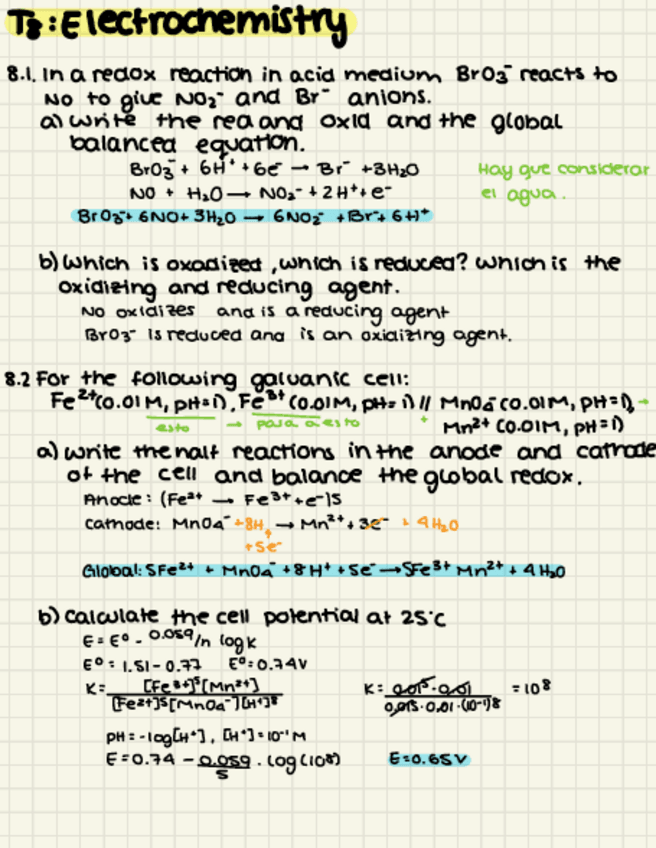 T8: Electrochemistry
8.1. In a redox reaction in acid medium BrO3⁻ reacts to
NO to give NO2⁻ and Br⁻ anions.
a) write the rea and oxid and the global
balanced equation.
BrO3⁻ + 6H⁺ + 6e⁻ → Br⁻ + 3H2O
Hay que considerar
NO + H2O → NO2⁻ + 2H⁺ + e⁻
el agua.
BrO3⁻ + 6NO + 3H2O → 6NO2⁻ + Br⁻ + 6H⁺
b) Which is oxadized, which is reduced? Which is the
oxidizing and reducing agent.
NO oxidizes and is a reducing agent
BrO3⁻ is reduced and is an oxidizing agent.
8.2 For the following galvanic cell:
Fe²⁺(0.01M, pH=1), Fe³⁺(0.01M, pH=1) // MnO4⁻(0.01M, pH=1), →
esto → para a esto + Mn²⁺(0.01M, pH=1)
a) write the half reactions in the anode and cathode
of the cell and balance the global redox.
Anode: (Fe²⁺ → Fe³⁺ + e⁻)5
Cathode: MnO4⁻ + 8H⁺ → Mn²⁺ + 3e⁻ + 4H2O
+5e⁻
Global: 5Fe²⁺ + MnO4⁻ + 8H⁺ + 5e⁻ → 5Fe³⁺ Mn²⁺ + 4H2O
b) Calculate the cell potential at 25°C
E = E° - 0.059/n log K
E° = 1.51 - 0.77 E° = 0.74V
K = [Fe³⁺]⁵[Mn²⁺] / [Fe²⁺]⁵[MnO4⁻][H⁺]⁸ K = 0.01⁵·0.01 / 0.01⁵·0.01·(10⁻¹)8 = 10⁸
pH = -log[H⁺], [H⁺] = 10⁻¹M
E = 0.74 - 0.059/5 · log(10⁸) E = 0.65V